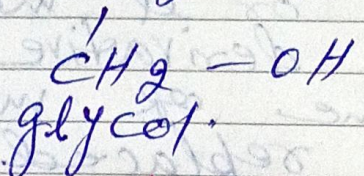 CH2 - OH
glycol.